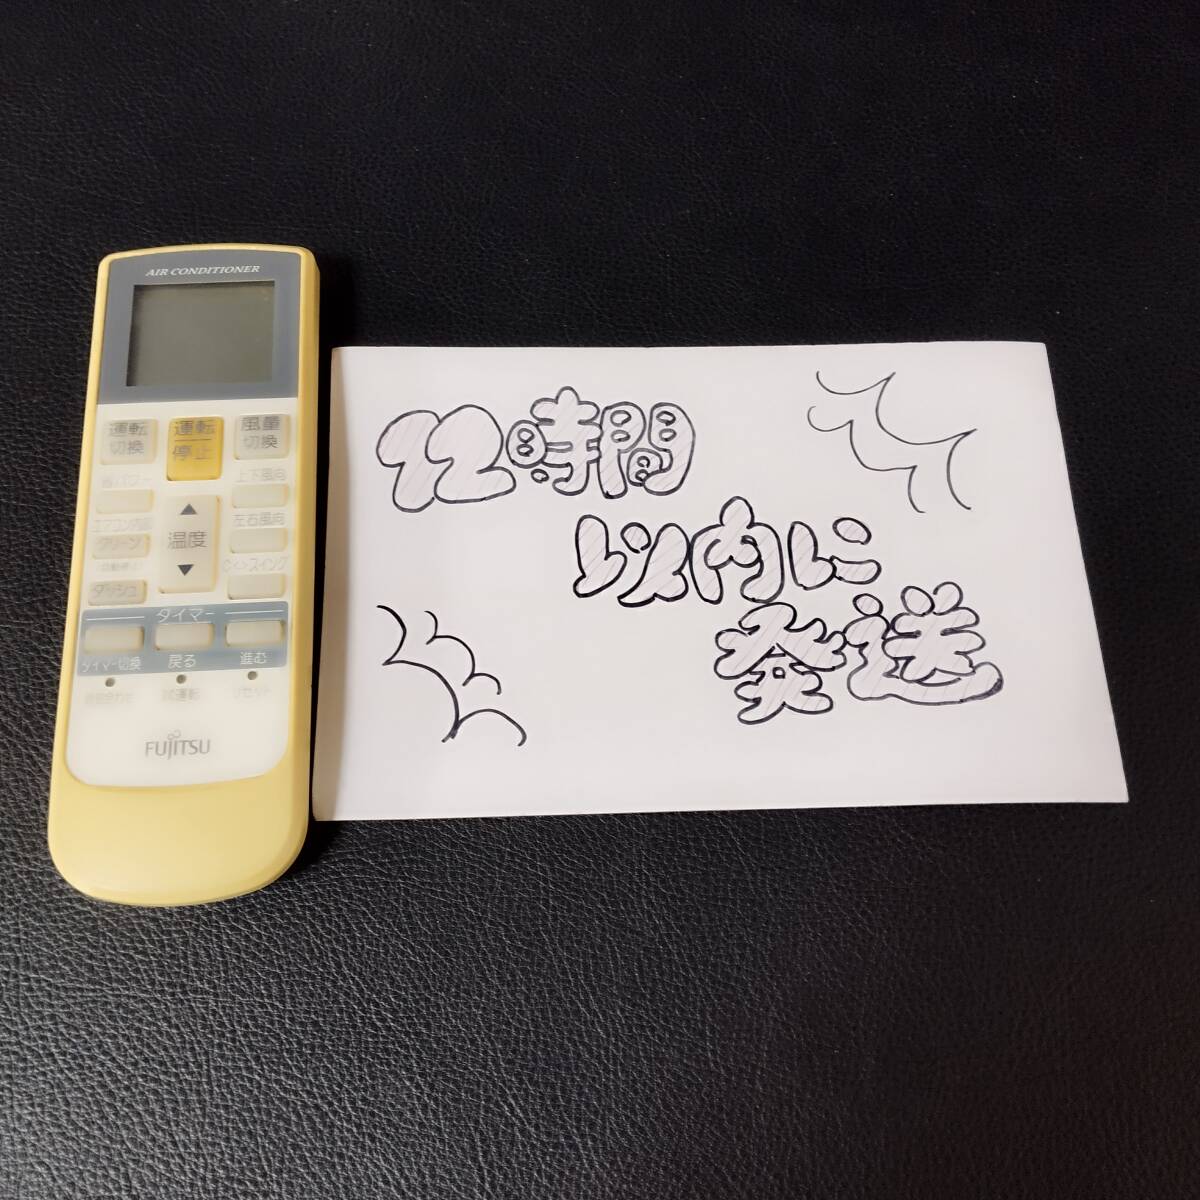 AIR CONDITIONER
運転切換
運転停止
風量切換
上下風向
エアコン内部
クリーン
温度
左右風向
スイング
ダッシュ
タイマー
タイマー切換
戻る
進む
試運転
リセット
FUJITSU
12時間
以内に
発送